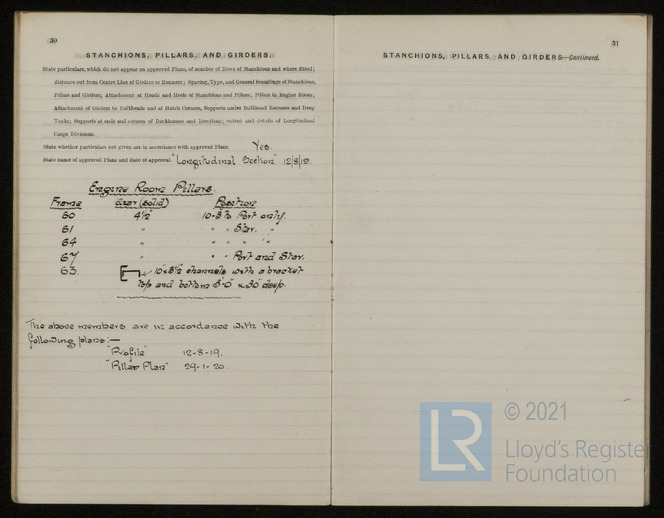 30
STANCHIONS, PILLARS, AND GIRDERS.
State particulars, which do not appear on approved Plans, of number of Rows of Stanchions and where fitted;
distance out from Centre Line of Girders or Runners; Spacing, Type, and General Scantlings of Stanchions,
Pillars and Girders; Attachment at Heads and Heels of Stanchions and Pillars; Pillars in Engine Room;
Attachment of Girders to Bulkheads and at Hatch Corners, Supports under Bulkhead Recesses and Deep
Tanks; Supports at ends and corners of Deckhouses and Erections; extent and details of Longitudinal
Cargo Divisions.
State whether particulars not given are in accordance with approved Plans. Yes.
State name of approved Plans and date of approval. "Longitudinal Section" 12/8/19.
Engine Room Pillars.
Frame Size (solid) Position
60 4½" Port only.
61 " " " Star. "
64 " " " " "
67 " " " Port and Star.
63 channels with a bracket
top and bottom 3'-0" x 30" deep.
The above members are in accordance with the
following plans:—
"Profile" 12-8-19.
"Pillar Plan" 29-1-20.
31
STANCHIONS, PILLARS, AND GIRDERS—Continued.
LR
© 2021
Lloyd's Register
Foundation